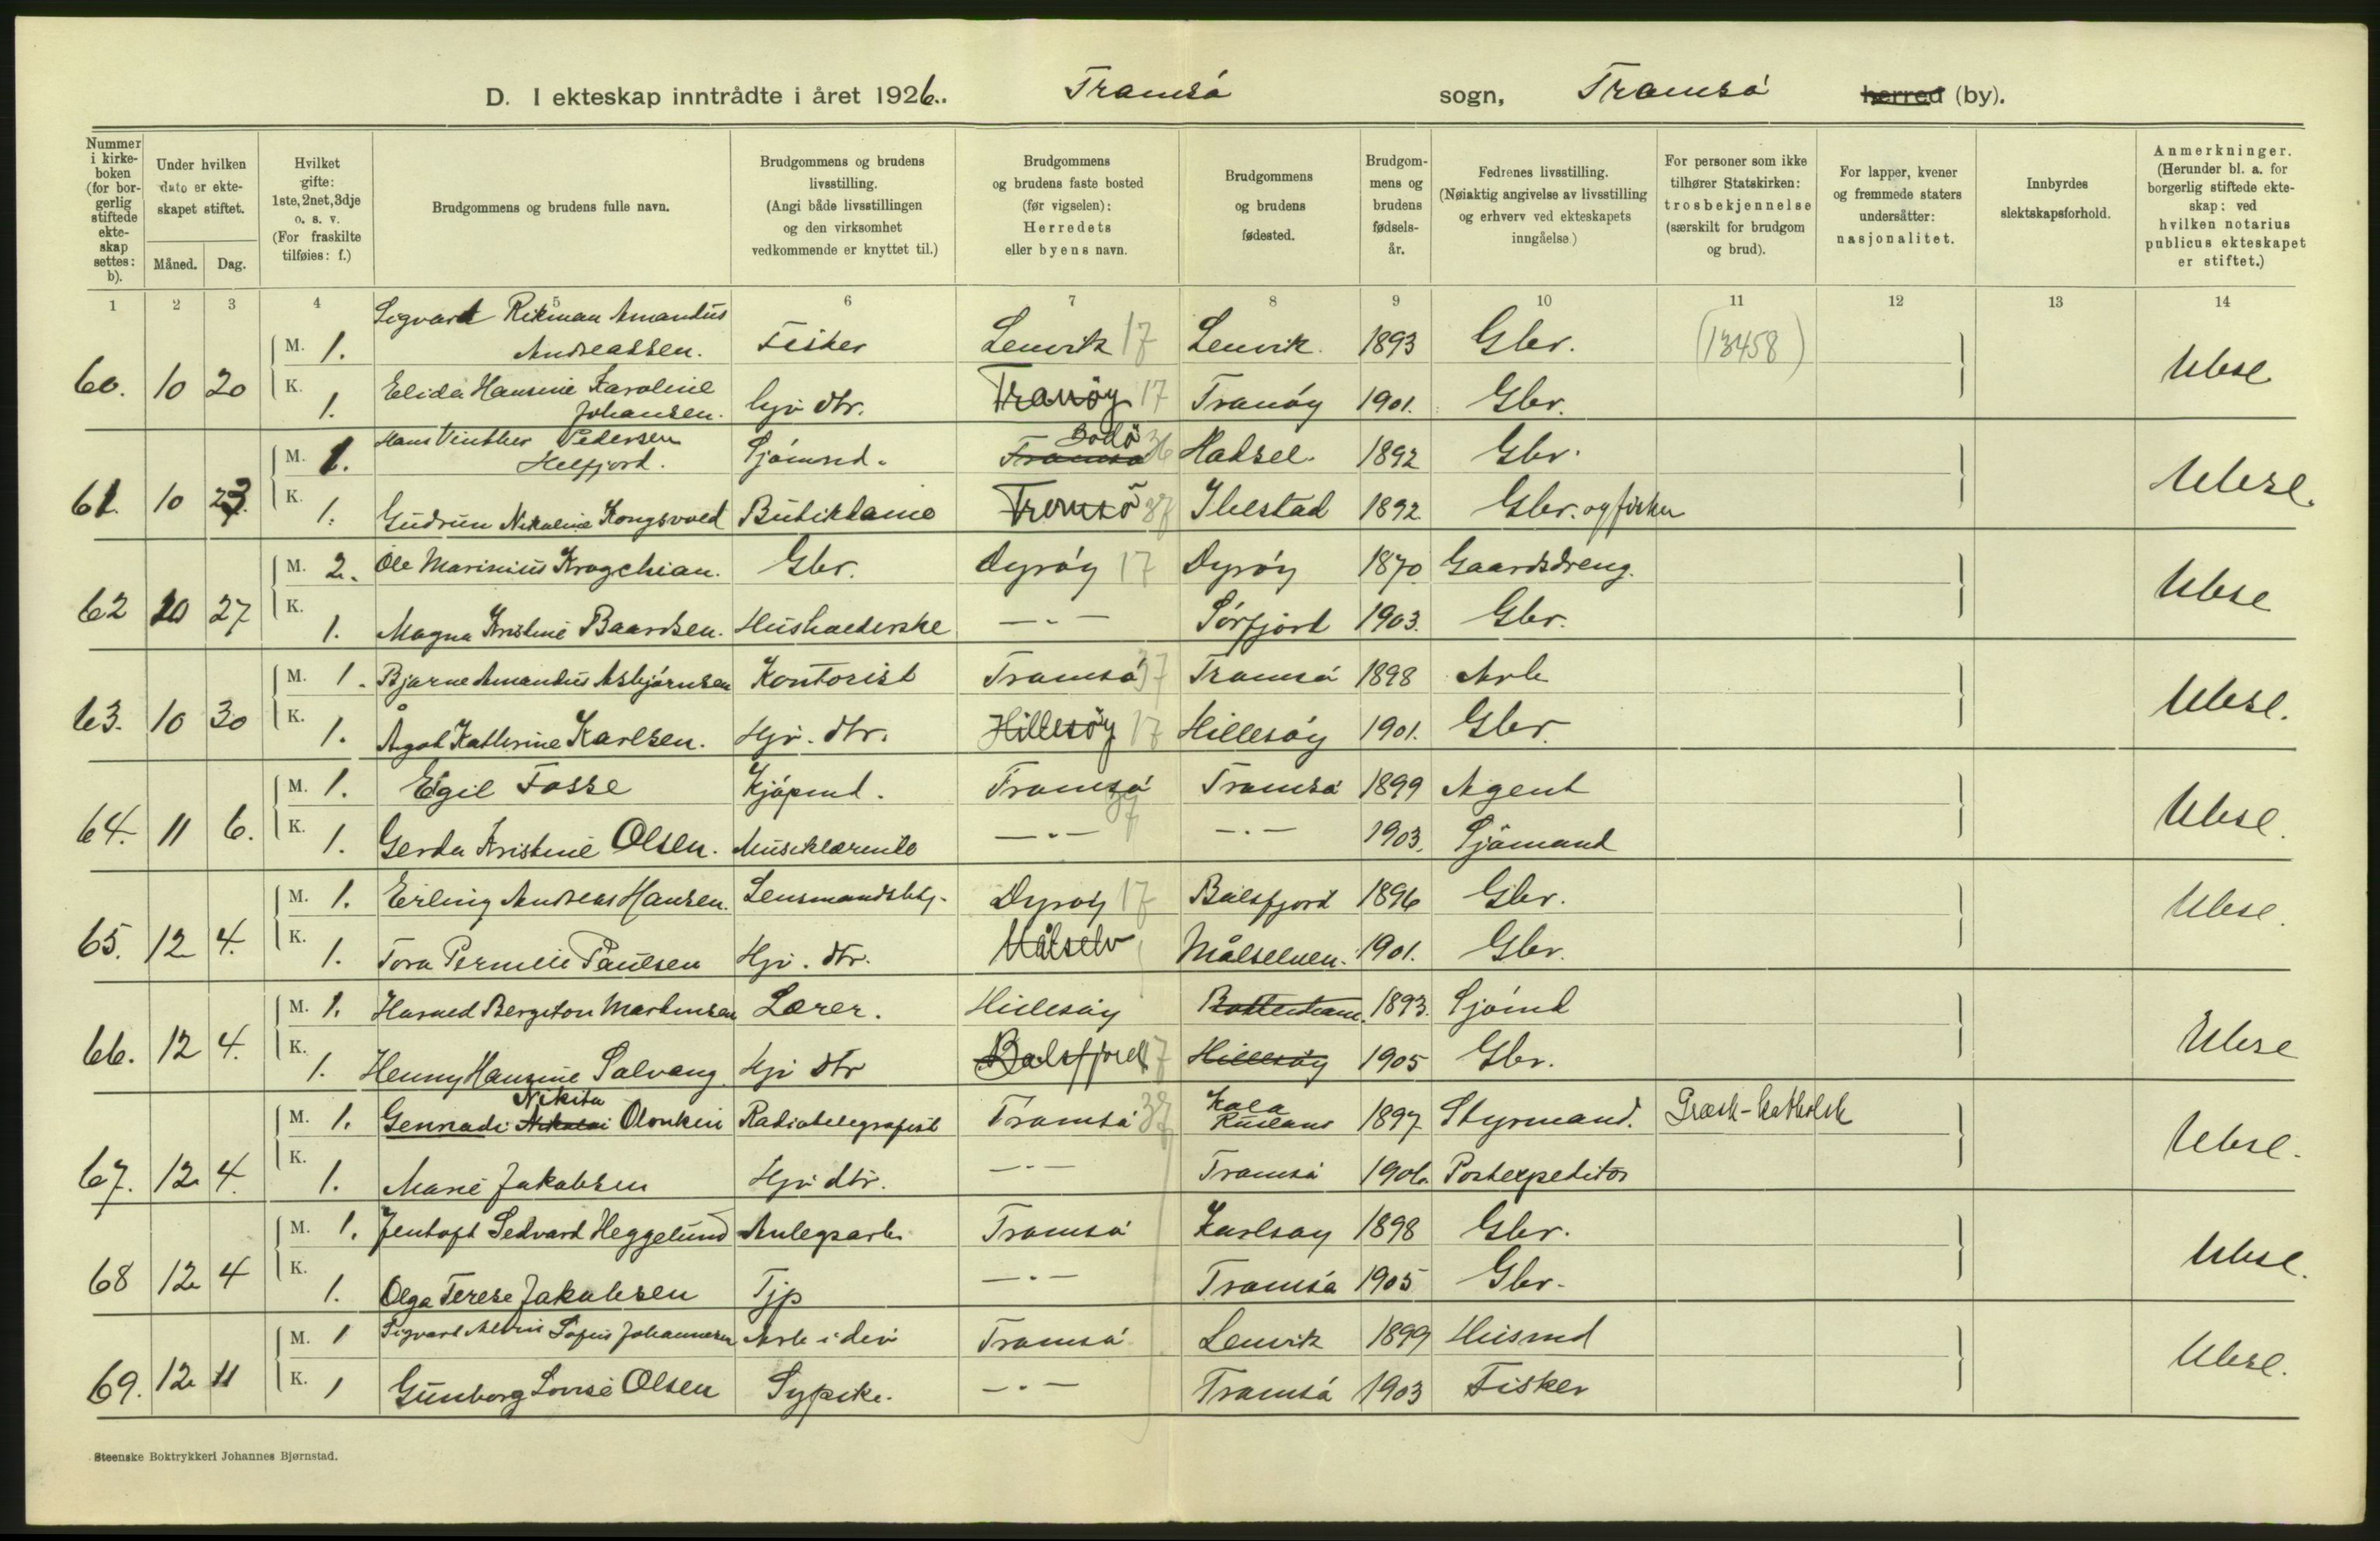 D. I ekteskap inntrådte i året 1926. Tromsø sogn, Tromsø herred (by).
Nummer i kirke-boken (for bor-gerlig stiftede ekte-skap settes: b).
Under hvilken dato er ekte-skapet stiftet.
Måned. Dag.
Hvilket gifte: 1ste, 2net, 3dje o. s. v. (For fraskilte tilføies: f.)
Brudgommens og brudens fulle navn.
Brudgommens og brudens livsstilling. (Angi både livsstillingen og den virksomhet vedkommende er knyttet til.)
Brudgommens og brudens faste bosted (før vigselen): Herredets eller byens navn.
Brudgommens og brudens fødested.
Brudgom-mens og brudens fødsels-år.
Fedrenes livsstilling. (Nøiaktig angivelse av livsstilling og erhverv ved ekteskapets inngåelse)
For personer som ikke tilhører Statskirken: trosbekjennelse (særskilt for brudgom og brud).
For lapper, kvener og fremmede staters undersåtter: nasjonalitet.
Innbyrdes slektskapsforhold.
Anmerkninger. (Herunder bl. a. for borgerlig stiftede ekte-skap: ved hvilken notarius publicus ekteskapet er stiftet.)
1 2 3 4 5 6 7 8 9 10 11 12 13 14
Sigvard Rikman Amandus
M. 1. Andreassen. Fisker Lenvik 17 Lenvik. 1893 Gbr. (13458)
60. 10 20 Ubesl.
K. 1. Elida Hansine Karoline Johansen. Hjv dtr. Tranöy 17 Tranøy 1901. Gbr.
M. 1. Hans Vinther Pedersen Helfjord. Sjömnd. Tromsø Bodö 36 Hadsel. 1892 Gbr.
61. 10 23. Ubesl.
K. 1. Gudrun Nikoline Kongsvold Butikdame Tromsö 37 Ibestad 1892 Gbr. og fisker
M. 2. Ole Marinius Krogchian. Gbr. Dyrøy 17 Dyrøy 1870 Gaardsdreng.
62 10 27 Ubesl
K. 1. Magna Kristine Baardsen. Husholderske —"— Sørfjord 1903. Gbr.
M. 1. Bjarne Amandus Asbjørnsen Kontorist Tromsø 37 Tromsø 1898 Arb
63. 10 30 Ubesl.
K. 1. Ågot Kathrine Karlsen. Hjv. dtr. Hillesöy 17 Hillesøy 1901. Gbr.
M. 1. Egil Fosse Kjøpmd. Tromsø 37 Tromsø 1899 Agent
64. 11 6. Ubesl.
K. 1. Gerda Kristine Olsen. Musiklærerinde —"— —"— 1903. Sjømand
M. 1. Erling Andreas Hansen. Lensmandsbtj. Dyrøy 17 Balsfjord 1896 Gbr.
65. 12 4. Ubesl.
K. 1. Tora Pernille Paulsen Hjv. dtr. Målselv Målselven. 1901. Gbr.
M. 1. Harald Bergiton Martinsen Lærer. Hillesøy 1893. Sjömd
66. 12 4. Ubesl
K. 1. Henny Hansine Solvang. Hjv dtr Balsfjord 17 Hillesøy 1905 Gbr.
Nikita
M. 1. Gennadi Nikolai Olonkin Radiotelegrafist Tromsø 37 Kola Rusland 1897 Styrmand. Græsk-katholsk
67. 12 4. Ubesl.
K. 1. Marie Jakobsen Hjv dtr. —"— Tromsø 1906. Postexpeditør
M. 1. Jentoft Sedvard Heggelund Anlegsarb. Tromsø Karlsøy 1898 Gbr.
68 12 4 Ubesl.
K. 1. Olga Terese Jakobsen Tjp —"— Tromsø 1905 Gbr.
M. 1 Sigvart Alvin Sofus Johannesen Arb i dev Tromsø Lenvik 1899 Husmd
69. 12 11 Ubesl.
K. 1 Gunborg Lovise Olsen Sypike. —"— Tromsø 1903 Fisker
Steenske Boktrykkeri Johannes Bjørnstad.